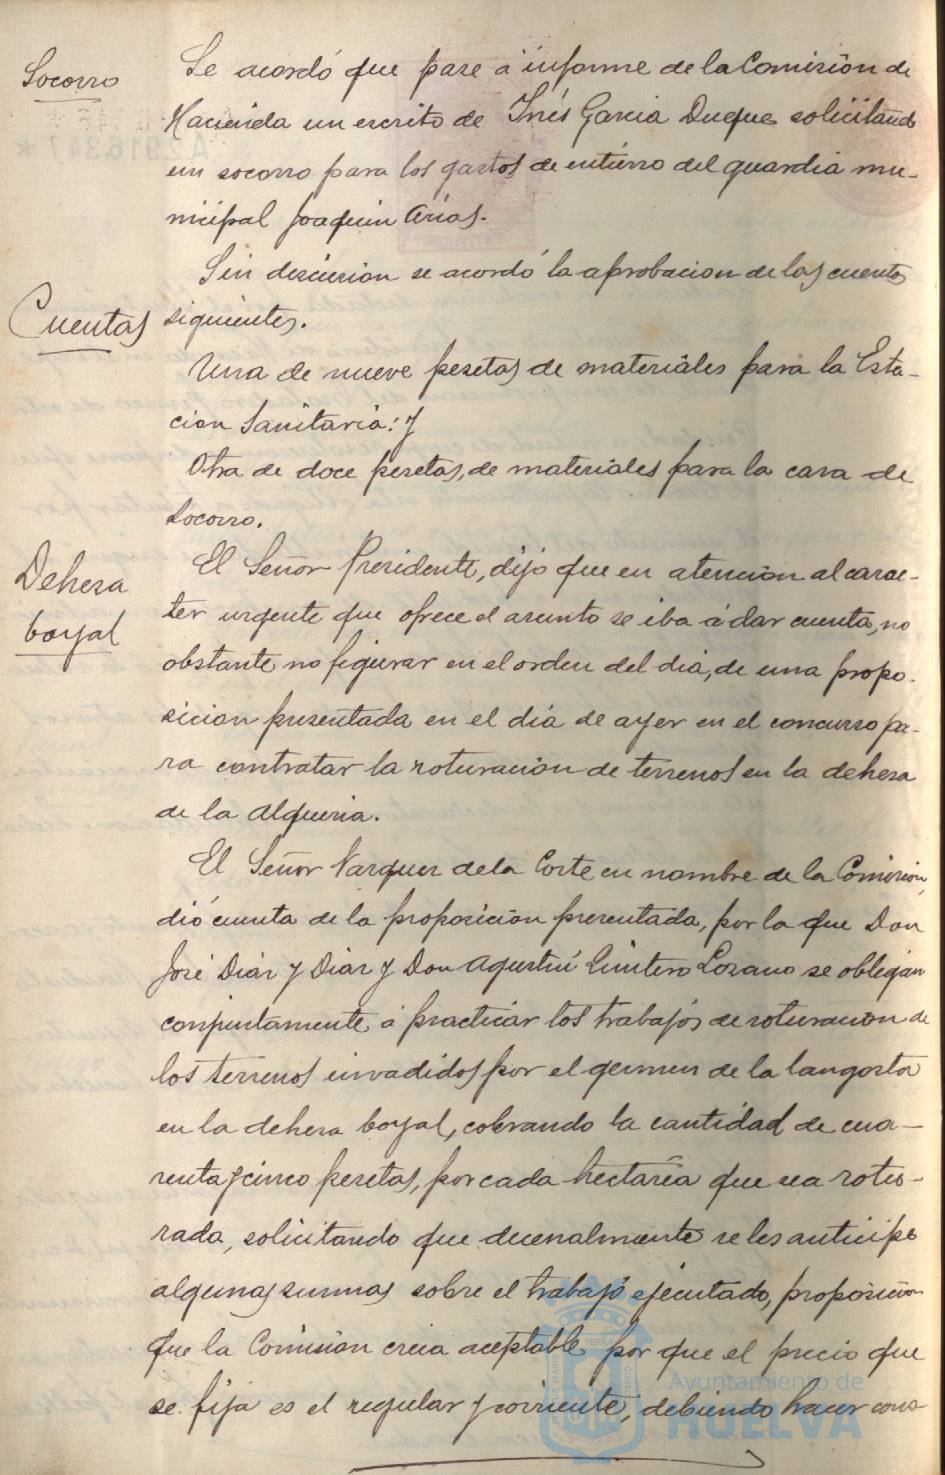 Socorro
Se acordó que pase á informe de la Comisión de
Hacienda un escrito de Inés Garcia Duque solicitando
un socorro para los gastos de entierro del guardia mu-
nicipal Joaquin Arias.
Sin discusion se acordó la aprobacion de las cuentas
Cuentas
siguientes.
Una de nueve pesetas de materiales para la Esta-
cion Sanitaria: y
Otra de doce pesetas, de materiales para la casa de
Socorro.
Dehesa
boyal
El Señor Presidente, dijo que en atencion al carac-
ter urgente que ofrece el asunto se iba á dar cuenta, no
obstante no figurar en el orden del dia, de una propo-
sicion presentada en el dia de ayer en el concurso pa-
ra contratar la roturacion de terrenos en la dehesa
de la Alqueria.
El Señor Vazquez de la Corte en nombre de la Comision,
dió cuenta de la proposicion presentada, por la que Don
José Diaz y Diaz y Don Agustin Quintero Lozano se obligan
conjuntamente á practicar los trabajos de roturacion de
los terrenos invadidos por el germen de la langosta
en la dehesa boyal, cobrando la cantidad de cua-
renta y cinco pesetas, por cada hectarea que sea rotu-
rada, solicitando que decenalmente se les anticipe
algunas sumas sobre el trabajo ejecutado, proposicion
que la Comision creia aceptable por que el precio que
se fija es el regular y corriente, debiendo hacer cons-
Ayuntamiento de
HUELVA